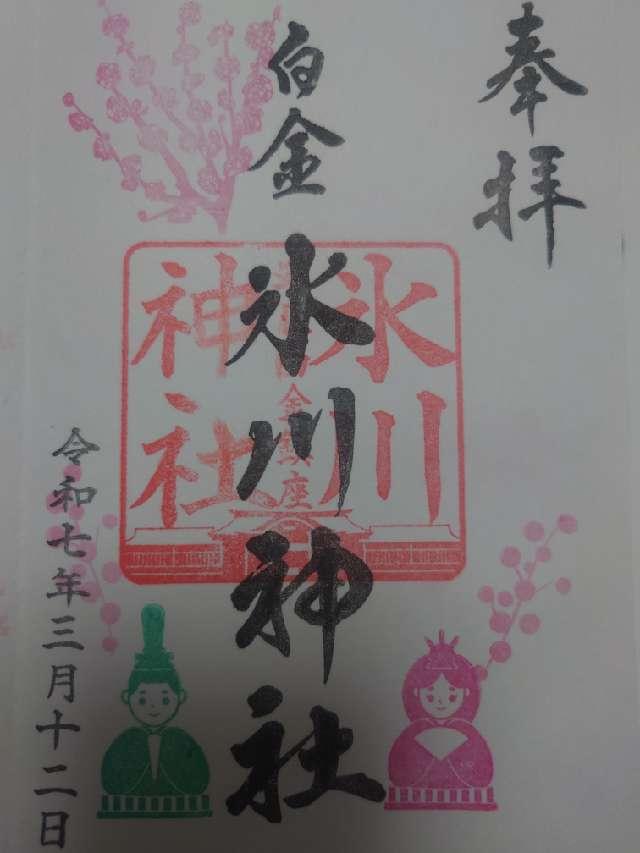 奉拝
白金
氷川神社
氷川
神社
令和七年三月十二日